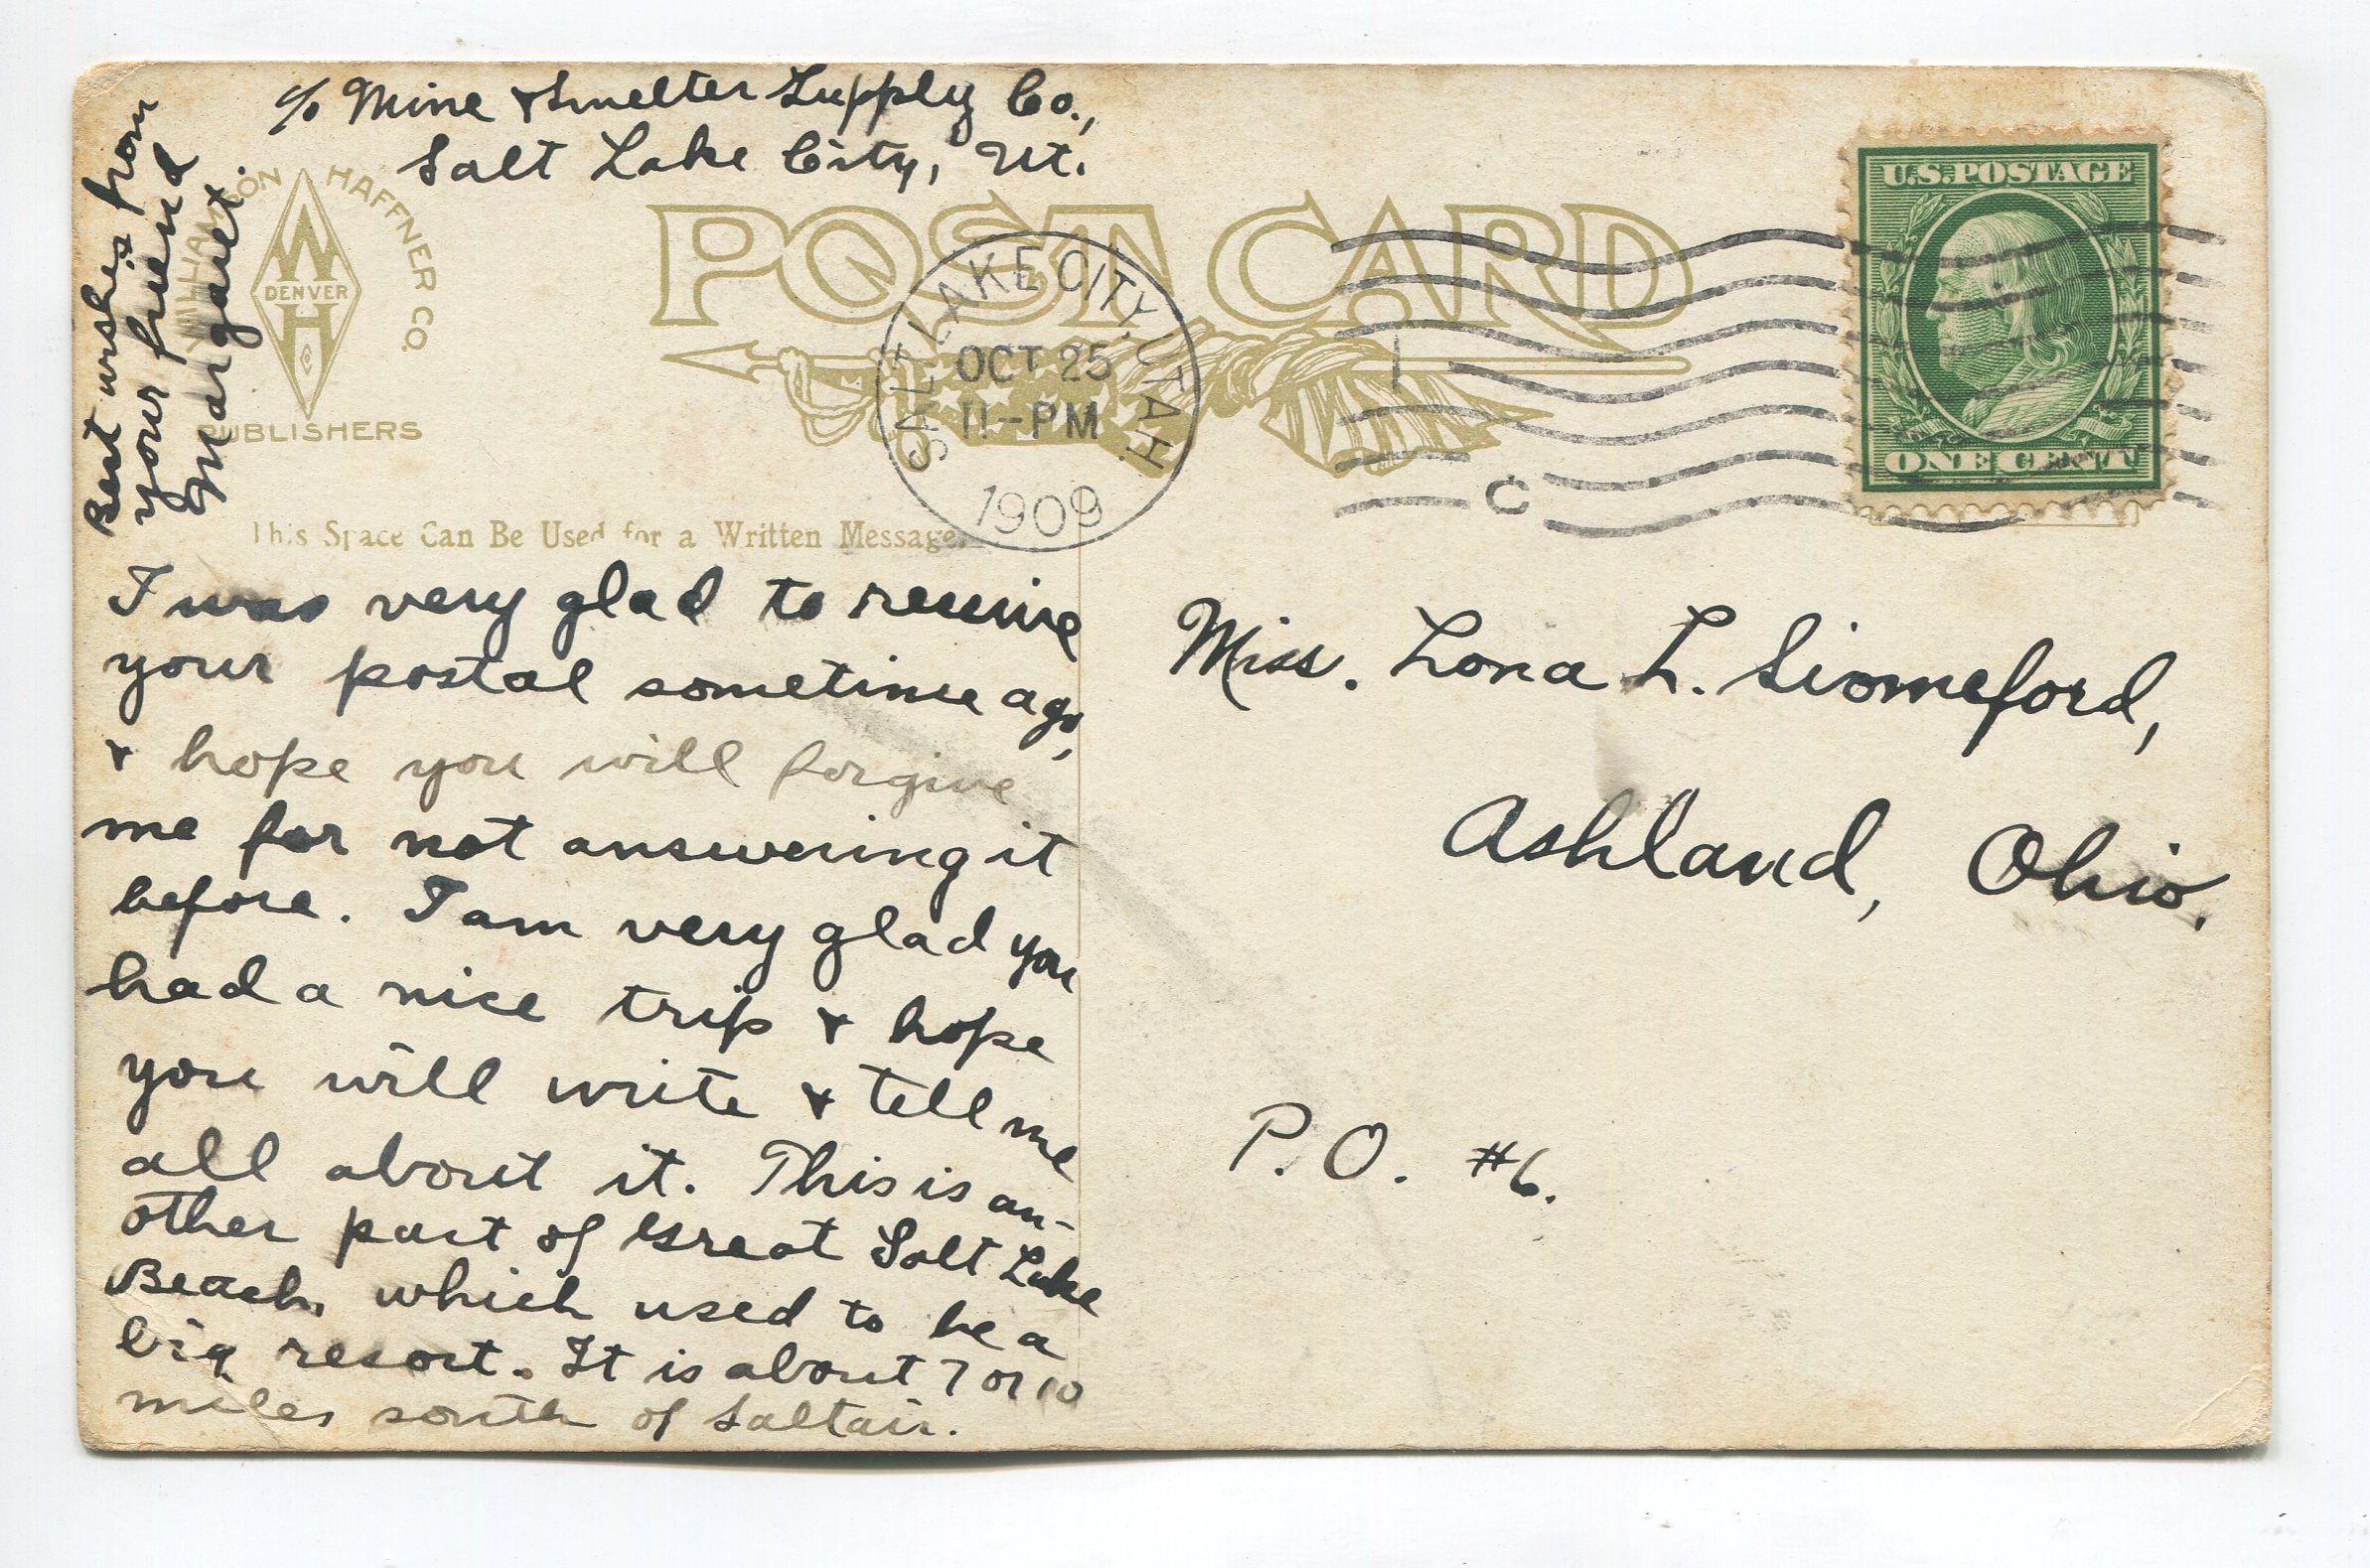 c/o Mine & Smelter Supply Co.,
Salt Lake City, Ut.
Best wishes from
your friend
Margaret.
WILLIAMSON HAFFNER CO.
W
DENVER
H
PUBLISHERS
POST CARD
SALT LAKE CITY, UTAH.
OCT 25
11-PM
1909
C
U.S. POSTAGE
ONE CENT
This Space Can Be Used for a Written Message.
I was very glad to receive
your postal sometime ago,
& hope you will forgive
me for not answering it
before. I am very glad you
had a nice trip & hope
you will write & tell me
all about it. This is an-
other part of Great Salt Lake
Beach, which used to be a
big resort. It is about 7 or 10
miles south of Saltair.
Miss. Lona L. Siomeford,
Ashland, Ohio.
P.O. #6.